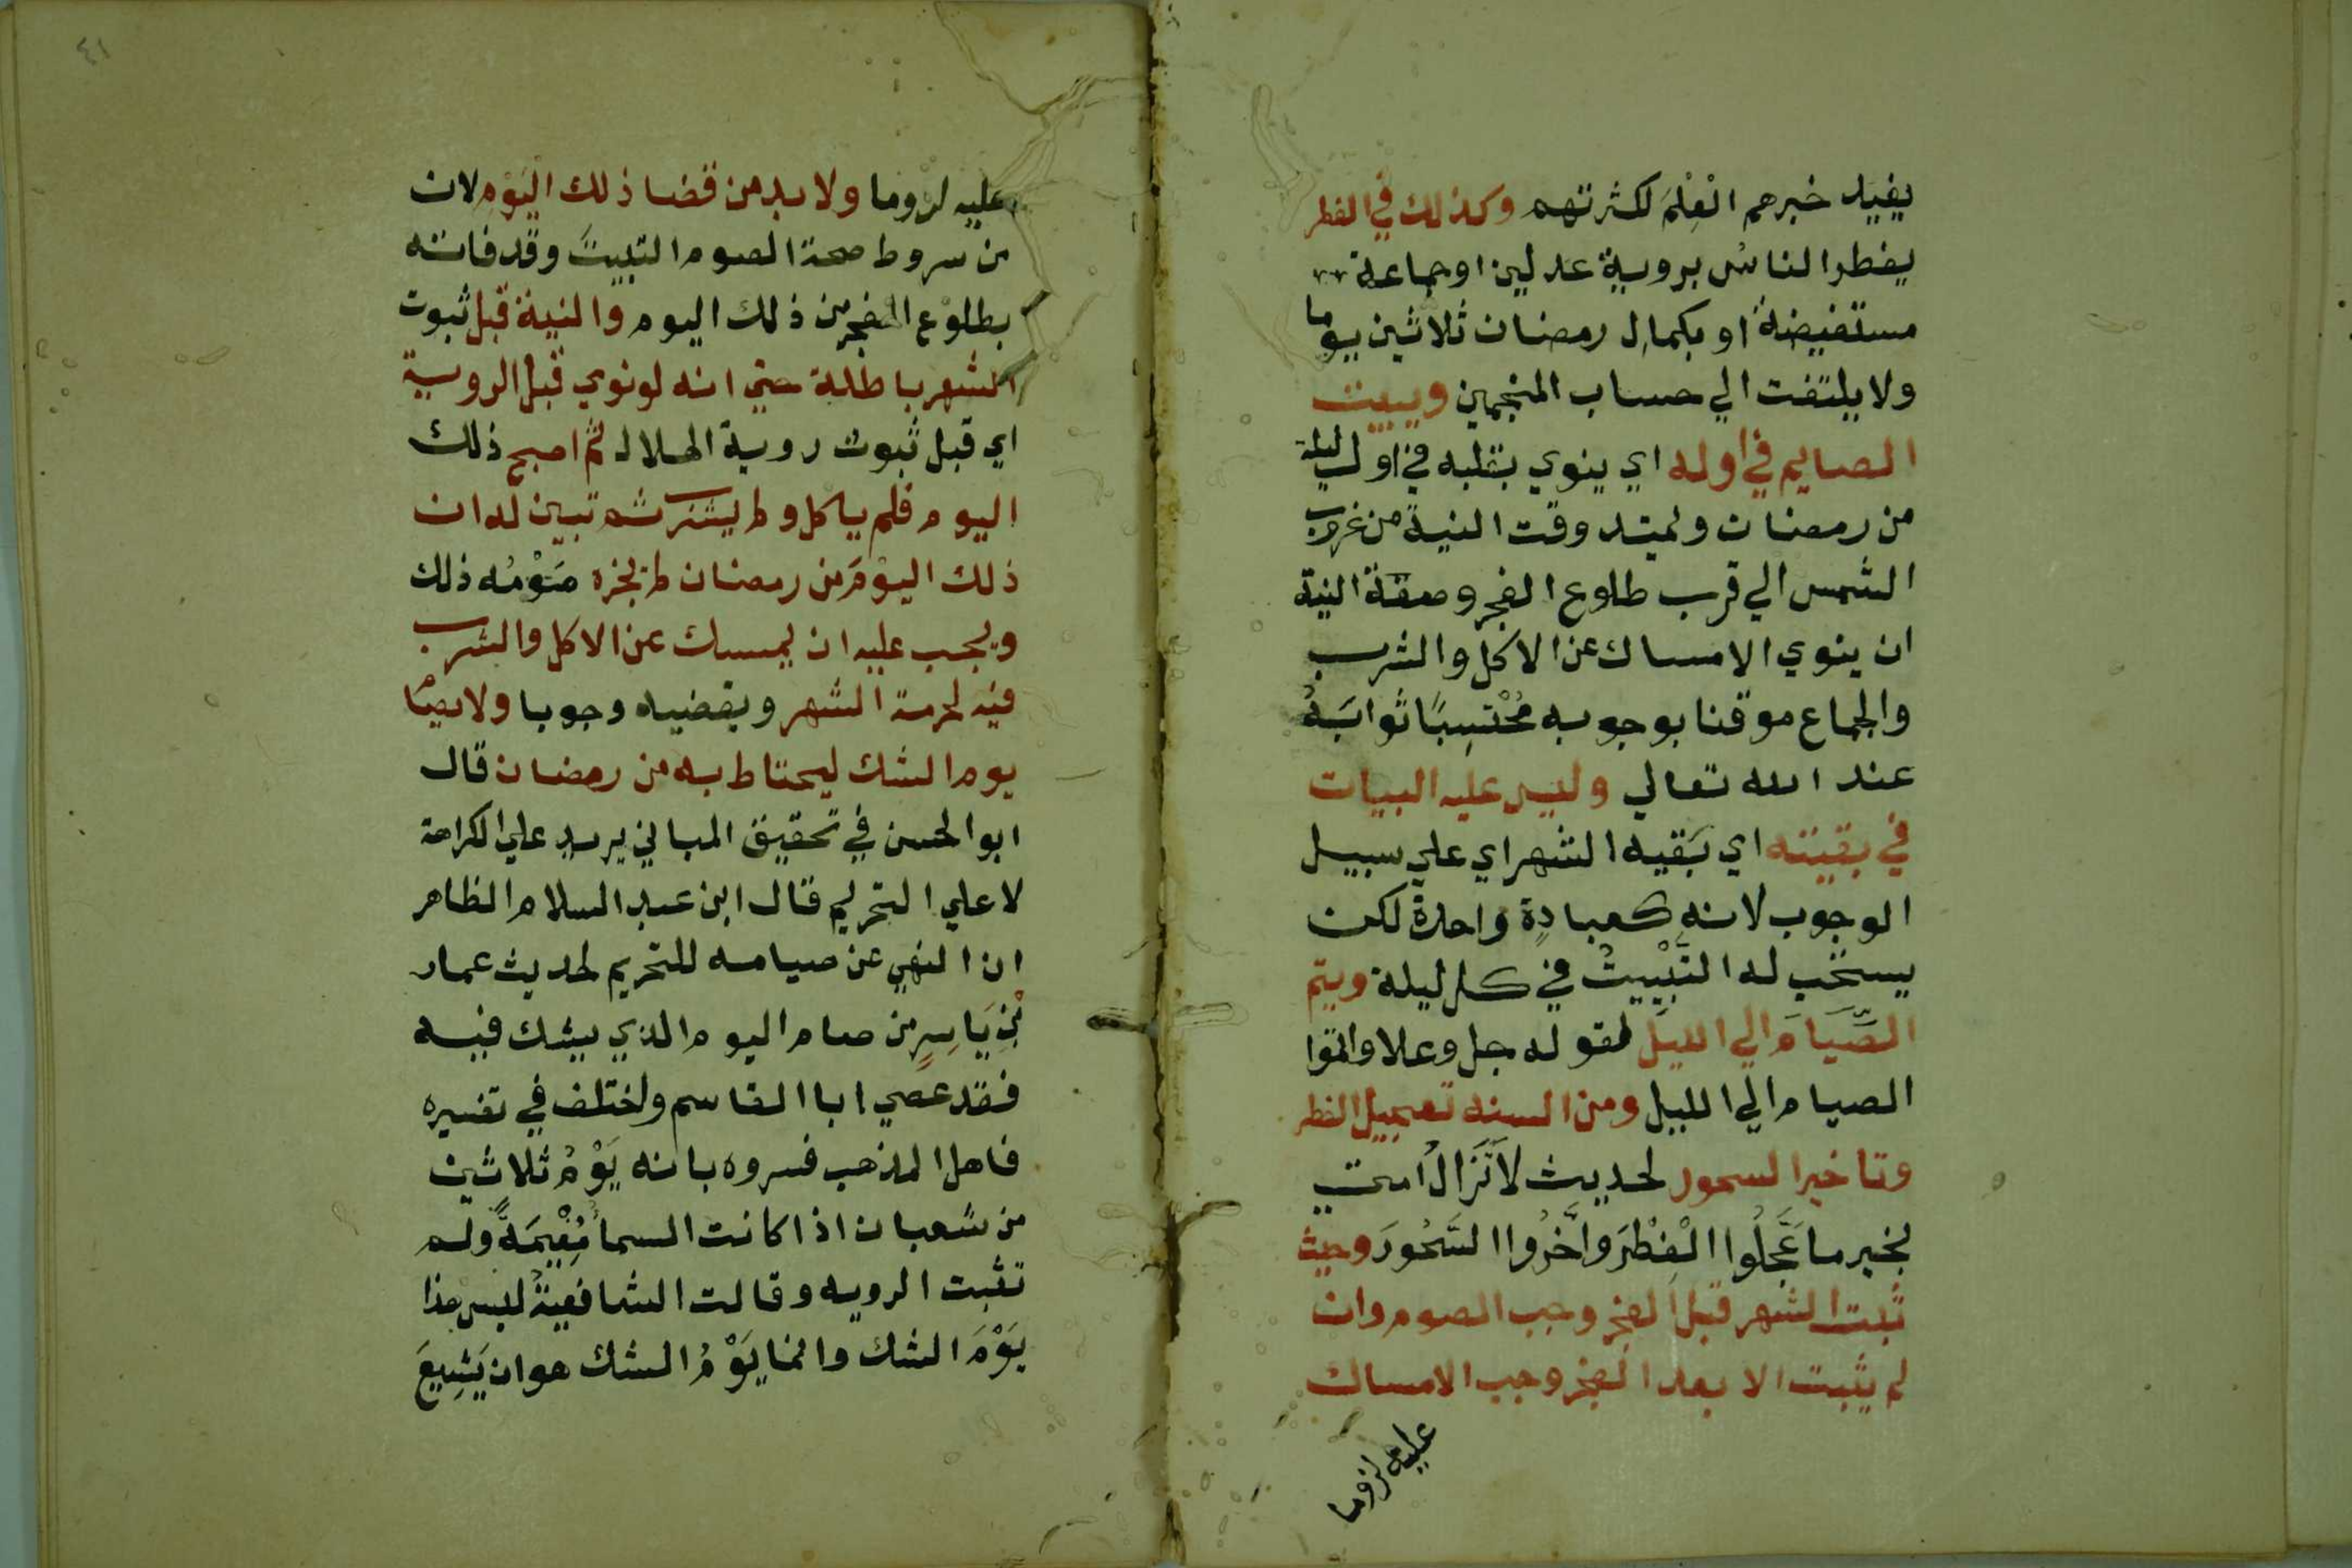 يفيد خبرهم الْعِلْمَ لكثرتهم وكذلك في الفطر
يفطر الناسُ بروية عدلين او جماعة
مستفيضة او بكمال رمضان ثلاثين يوما
ولا يلتفت الي حساب المنجمين ويبيت
الصايم في اوله اي ينوي بقلبه في اول ليلة
من رمضان ويمتد وقت النية من غروب
الشمس الي قرب طلوع الفجر وصفة النية
ان ينوي الامساك عن الاكل والشرب
والجماع موقنا بوجوبه مُحْتسِبًا ثوابَهُ
عند الله تعالي وليس عليه البيات
في بقيته اي بَقيه الشهر اي علي سبيل
الوجوب لانه كعبادةٍ واحدة لكن
يستحب له التَّبْيِيتُ في كل ليلة ويتم
الصِّيَامَ الي الليل لقوله جل وعلا واتموا
الصيام الي الليل ومن السنه تعجيل الفطر
وتاخير السحور لحديث لاَتَزَالُ امتي
بخير ما عَجَّلُوا الْفِطْرَ واَخَّرُوا السَّحُورَ وحيث
ثبت الشهر قبل الفجر وجب الصوم وان
لم يثبت الا بعد الفجر وجب الامساك
عليه لزوما
٤١
عليه لزوما ولا بد من قضا ذلك اليَوْمِ لان
من سروط صحة الصوم التبييتَ وقد فاته
بطلوع الفجر من ذلك اليوم والنية قبل ثبوت
الشهر باطلة حتي انه لو نوي قبل الروية
اي قبل ثبوت روية الهلال ثم اصبح ذلك
اليوم فلم ياكل ولم يشرب ثم تبين له ان
ذلك اليوْمَ من رمضان لم يجزه صَوْمُه ذلك
ويجب عليه ان يمسك عن الاكل والشرب
فيه لحرمة الشهر ويقضيه وجوبا ولا يصام
يوم الشك ليحتاط به من رمضان قال
ابو الحسن في تحقيق المباني يريد علي الكراهة
لا علي التحريم قال ابن عبد السلام الظاهر
ان النهي عن صيامه للتحريم لحديث عمار
بْنِ يَاسِرٍ من صام اليوم الذي يشك فيه
فقد عصي ابا القاسم واختلف في تفسيره
فاهل المذهب فسروه بانه يَوْمُ ثلاثين
من شعبان اذا كانت السماُ مُغْيِمَةً ولم
تثبت الرويه وقالت الشافعيةُ ليس هذا
يَوْمَ الشك وانما يَوْمُ الشك هو ان يَشِيعَ